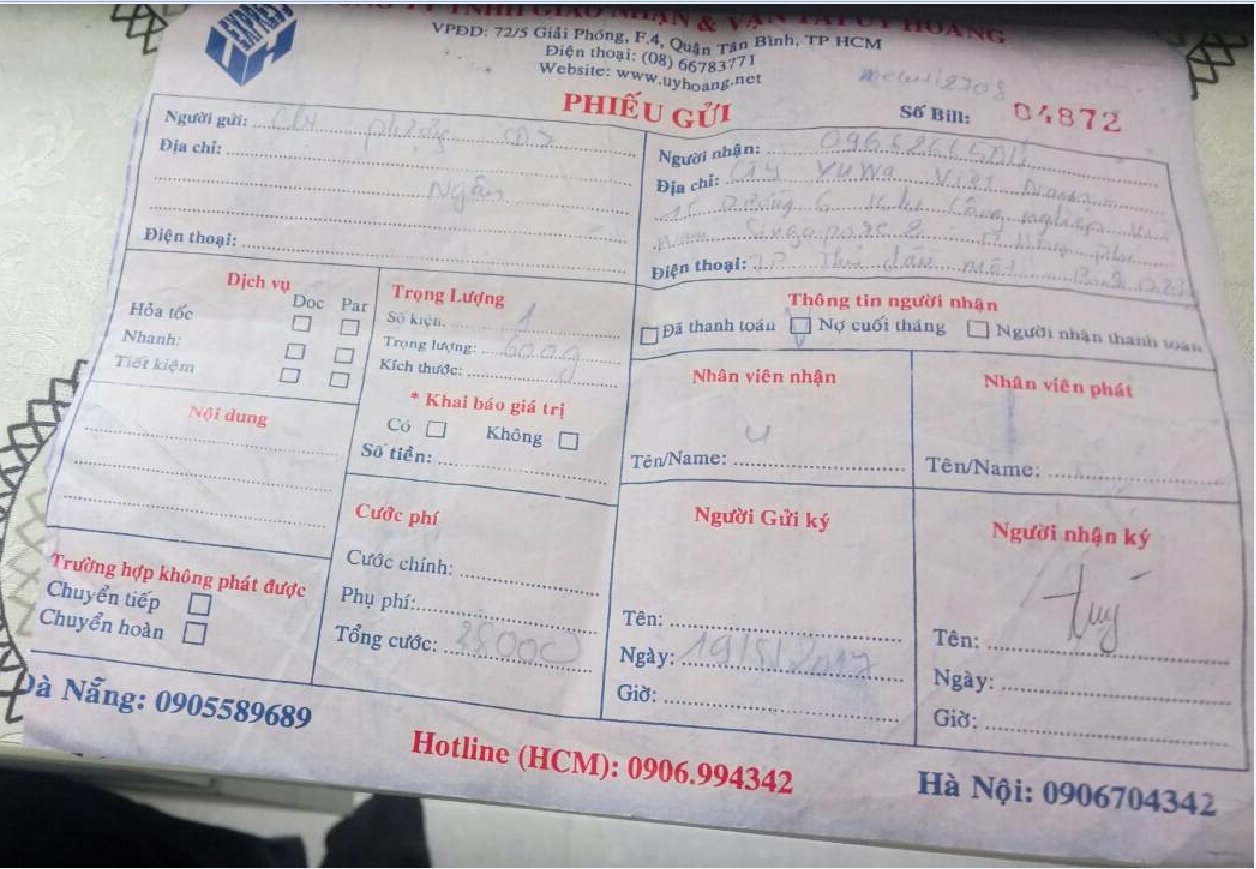 TNHH GIAO NHẬN & VẬN TẢI UY HOANG
VPĐD: 72/5 Giải Phóng, F.4, Quận Tân Bình, TP HCM
Điện thoại: (08) 66783771
Website: www.uyhoang.net
PHIẾU GỬI
Số Bill: 04872
Người gửi:
Địa chỉ:
Ngân
Điện thoại:
Người nhận:
Địa chỉ: Cty YUWA Việt Nam
15 Đường 6 Công nghiệp
Singapore 2
Điện thoại: TP Thủ dầu một
Dịch vụ
Doc Par
Hỏa tốc
Nhanh:
Tiết kiệm
Trọng Lượng
Số kiện: 1
Trọng lượng: 600g
Kích thước:
* Khai báo giá trị
Có Không
Số tiền:
Thông tin người nhận
Đã thanh toán Nợ cuối tháng Người nhận thanh toán
Nhân viên nhận
Tên/Name:
Nhân viên phát
Tên/Name:
Nội dung
Cước phí
Cước chính:
Phụ phí:
Tổng cước: 38000
Người Gửi ký
Tên:
Ngày: 19/5/2017
Giờ:
Người nhận ký
Tên:
Ngày:
Giờ:
Trường hợp không phát được
Chuyển tiếp
Chuyển hoàn
Đà Nẵng: 0905589689
Hotline (HCM): 0906.994342
Hà Nội: 0906704342